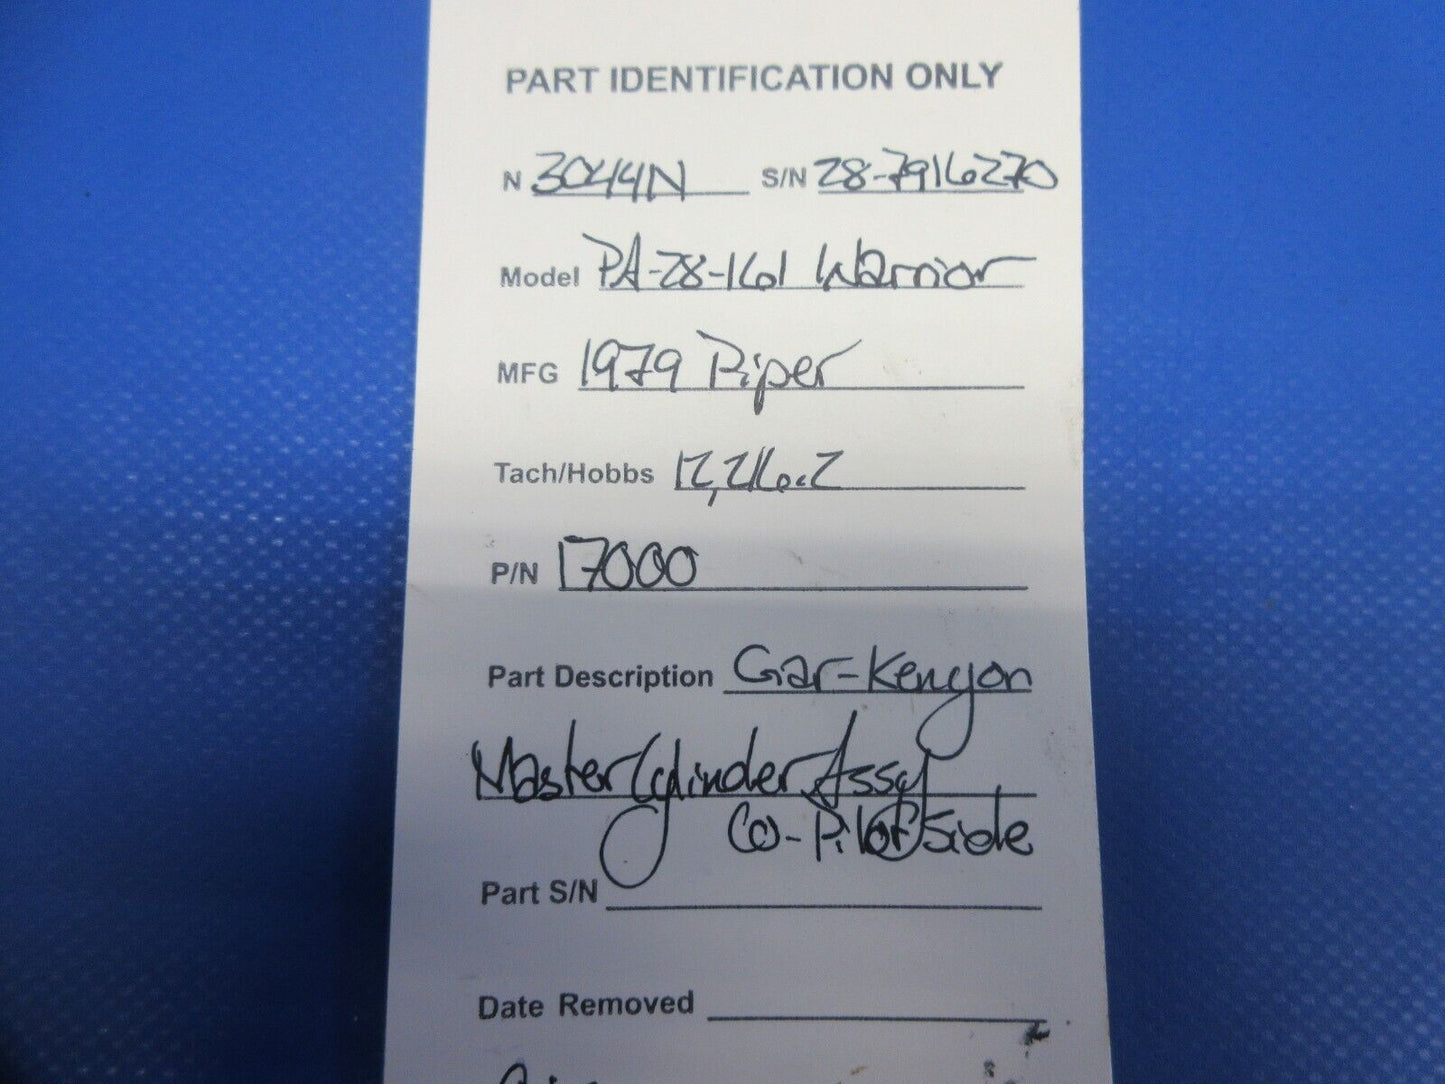 PART IDENTIFICATION ONLY
N 3044N S/N 28-7916270
Model PA-28-161 Warrior
MFG 1979 Piper
Tach/Hobbs 12,216.2
P/N 17000
Part Description Gar-Kenyon
Master Cylinder Assy
Co-Pilot Side
Part S/N
Date Removed